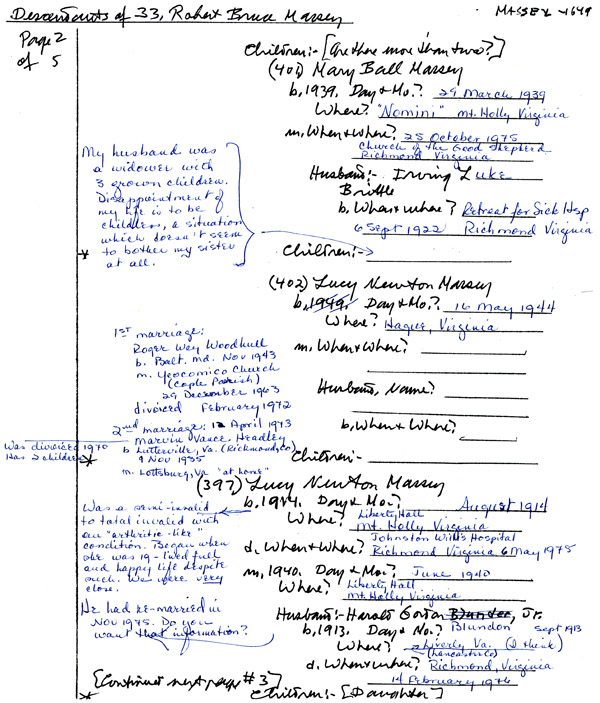 Descendants of 33, Robert Bruce Massey
MASSEY-1649
Page 2
of 5
Children:- [Are there more than two?]
(401) Mary Ball Massey
b. 1939. Day & Mo.? 29 March 1939
Where? "Nomini" Mt. Holly Virginia
m. When & Where? 25 October 1975
Church of the Good Shepherd
Richmond Virginia
Husband:- Irving Luke
Brittle
b. When & where? Retreat for Sick Hosp
6 Sept 1922 Richmond Virginia
Children:-
My husband was
a widower with
3 grown children.
Disappointment of
my life is to be
childless, a situation
which doesn't seem
to bother my sister
at all.
(402) Lucy Newton Massey
b. 1949. Day & Mo.? 16 May 1944
Where? Hague, Virginia
m. When & Where?
Husband, Name?
b. When & Where?
Children:-
1st marriage:
Roger Wey Woodhull
b. Balt. Md. Nov 1943
m. Yeocomico Church
(Cople Parish)
29 December 1963
divorced February 1972
2nd marriage: 12 April 1973
Marvin Vance Headley
b Lutterville, Va. (Richmond, Co)
9 Nov 1935
m. Lottsburg, Va "at home"
Was divorced 1970
Has 2 children
(397) Lucy Newton Massey
b. 1914. Day & Mo.? August 1914
Where? Liberty Hall
Mt. Holly Virginia
Johnston Willis Hospital
d. When & Where? Richmond Virginia 6 May 1975
m, 1940. Day & Mo.? June 1940
Where? Liberty Hall
Mt. Holly Virginia
Husband:- Harold Gordon Blunder, Jr.
Blundon
b. 1913. Day & Mo.? Sept 1913
Where? Liverly Va. (I think)
(Lancaster Co)
d. When & where? Richmond, Virginia
14 February 1976
Children:- [Daughter]
Was a semi-invalid
to total invalid with
an "arthritic-like"
condition. Began when
she was 19 - lived full
and happy life despite
such. We were very
close.
He had re-married in
Nov 1975. Do you
want that information?
[Continued next page #3]